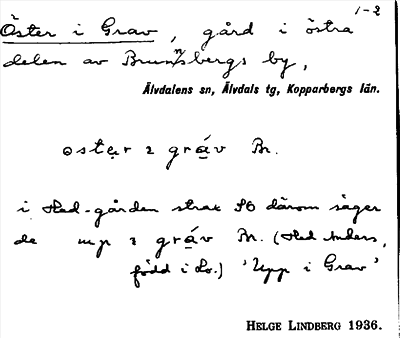 1-2
Öster i Grav, gård i östra
delen av Brunnsbergs by,
Älvdalens sn, Älvdals tg, Kopparbergs län.
ɷstạr ɿ grá̱v Br.
i Hed-gården strax SO därom säger
de up ɿ grá̱v Br. (Hed Anders,
född i Lo.) 'Upp i Grav'
HELGE LINDBERG 1936.